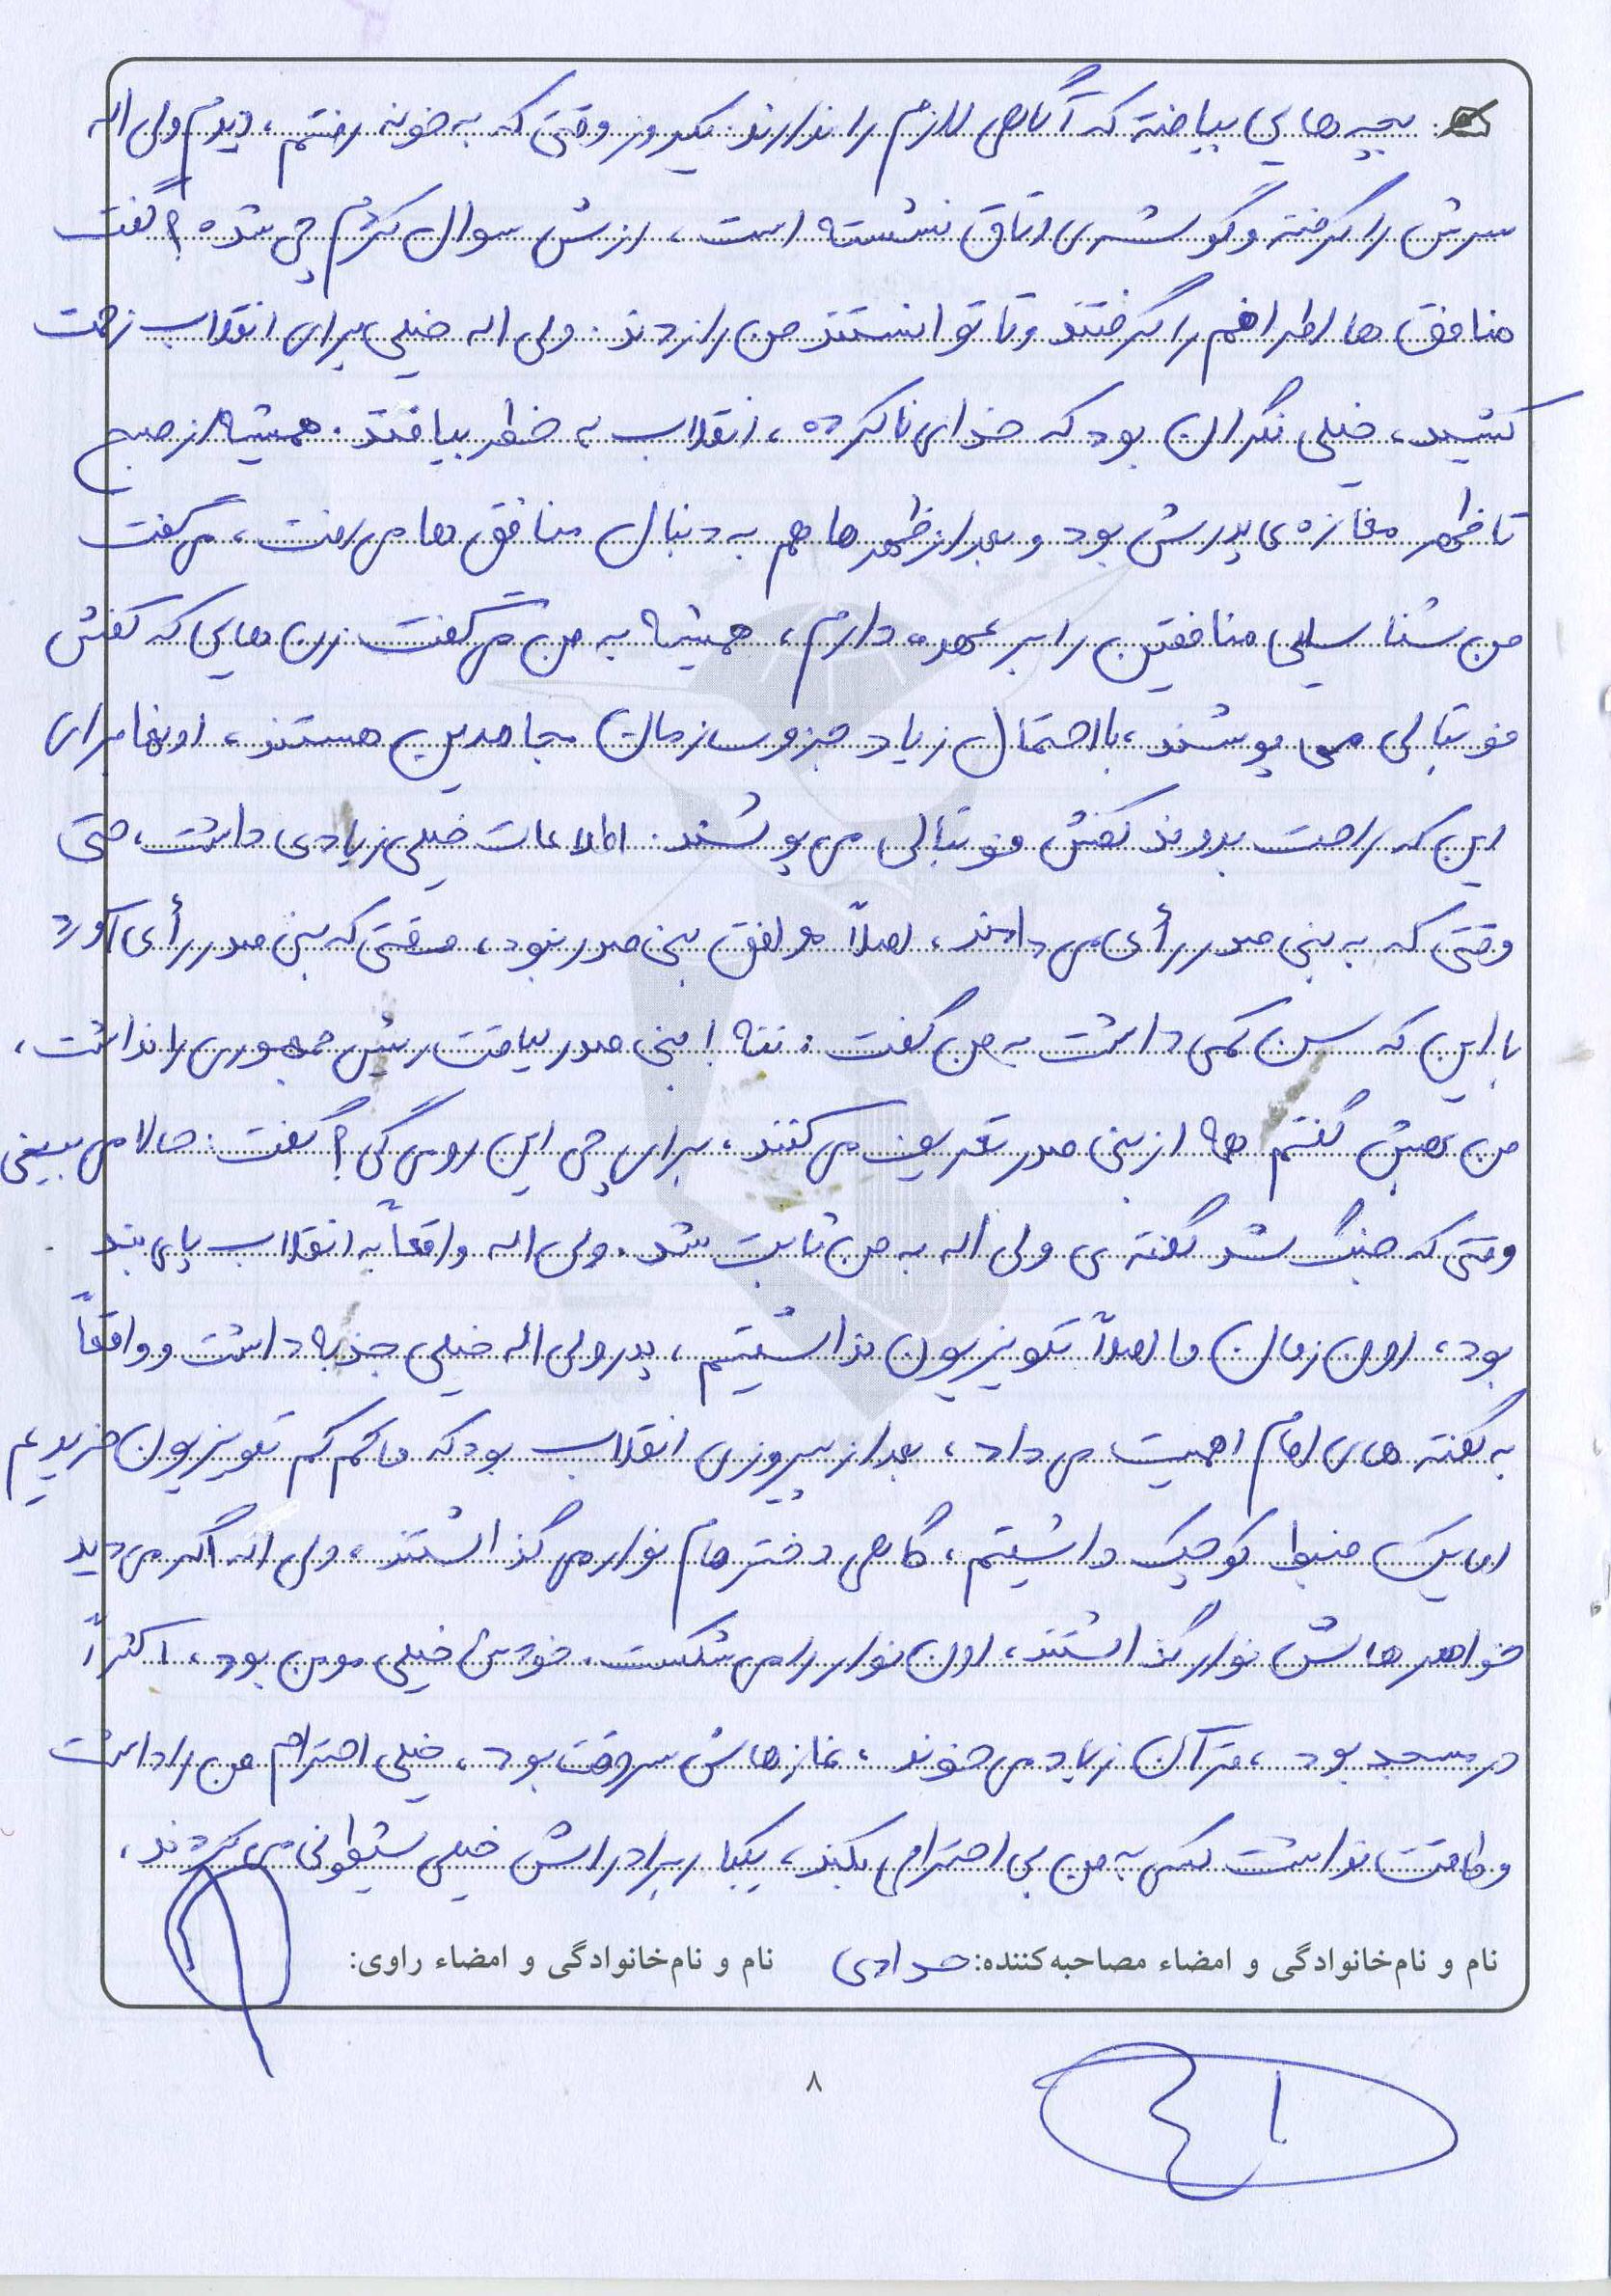 بچه هایی بیافته که آگاهی لازم را ندارند. یکروز وقتی که به خونه رفتم، دیدم ولی اله
سرش را گرفته و گوشه ی اتاق نشسته است، ازش سوال کردم چی شده؟ گفت
منافق ها اطرافم را گرفتند و تا توانستند من را زدند. ولی اله خیلی برای انقلاب زحمت
کشید، خیلی نگران بود که خدای ناکرده، انقلاب به خطر بیافتد. همیشه از صبح
تا ظهر مغازه ی پدرش بود و بعد از ظهرها هم به دنبال منافق ها می رفت، می گفت
من شناسایی منافقین را بر عهده دارم، همیشه به من می گفت زن هایی که کفش
فوتبالی می پوشند، با احتمال زیاد جزو سازمان مجاهدین هستند، اونها برای
این که راحت بدوند کفش فوتبالی می پوشند. اطلاعات خیلی زیادی داشت، حتی
وقتی که به بنی صدر رأی می دادند، اصلاً موافق بنی صدر نبود، وقتی که بنی صدر رأی آورد
با این که سن کمی داشت به من گفت: ننه! بنی صدر لیاقت رئیس جمهوری را نداشت،
من بهش گفتم همه از بنی صدر تعریف می کنند، برای چی این رو می گی؟ گفت: حالا می بینی
وقتی که جنگ شد گفته ی ولی اله به من ثابت شد. ولی اله واقعاً به انقلاب پای بند
بود، اون زمان ما اصلاً تلویزیون نداشتیم، پدر ولی اله خیلی جذبه داشت و واقعاً
به گفته های امام اهمیت می داد، بعد از پیروزی انقلاب بود که ما کم کم تلویزیون خریدیم
اما یک ضبط کوچیک داشتیم، گاهی دخترهام نوار می گذاشتند، ولی اله اگر می دید
خواهرهاش نوار گذاشتند، اون نوار را می شکست. خودش خیلی مومن بود، اکثراً
در مسجد بود، قرآن زیاد می خوند، نمازهاش سر وقت بود، خیلی احترام من را داشت
و طاقت نداشت کسی به من بی احترامی بکند، یکبار برادراش خیلی شیطونی می کردند،
نام و نام‌خانوادگی و امضاء مصاحبه‌کننده: حدادی نام و نام‌خانوادگی و امضاء راوی:
۸